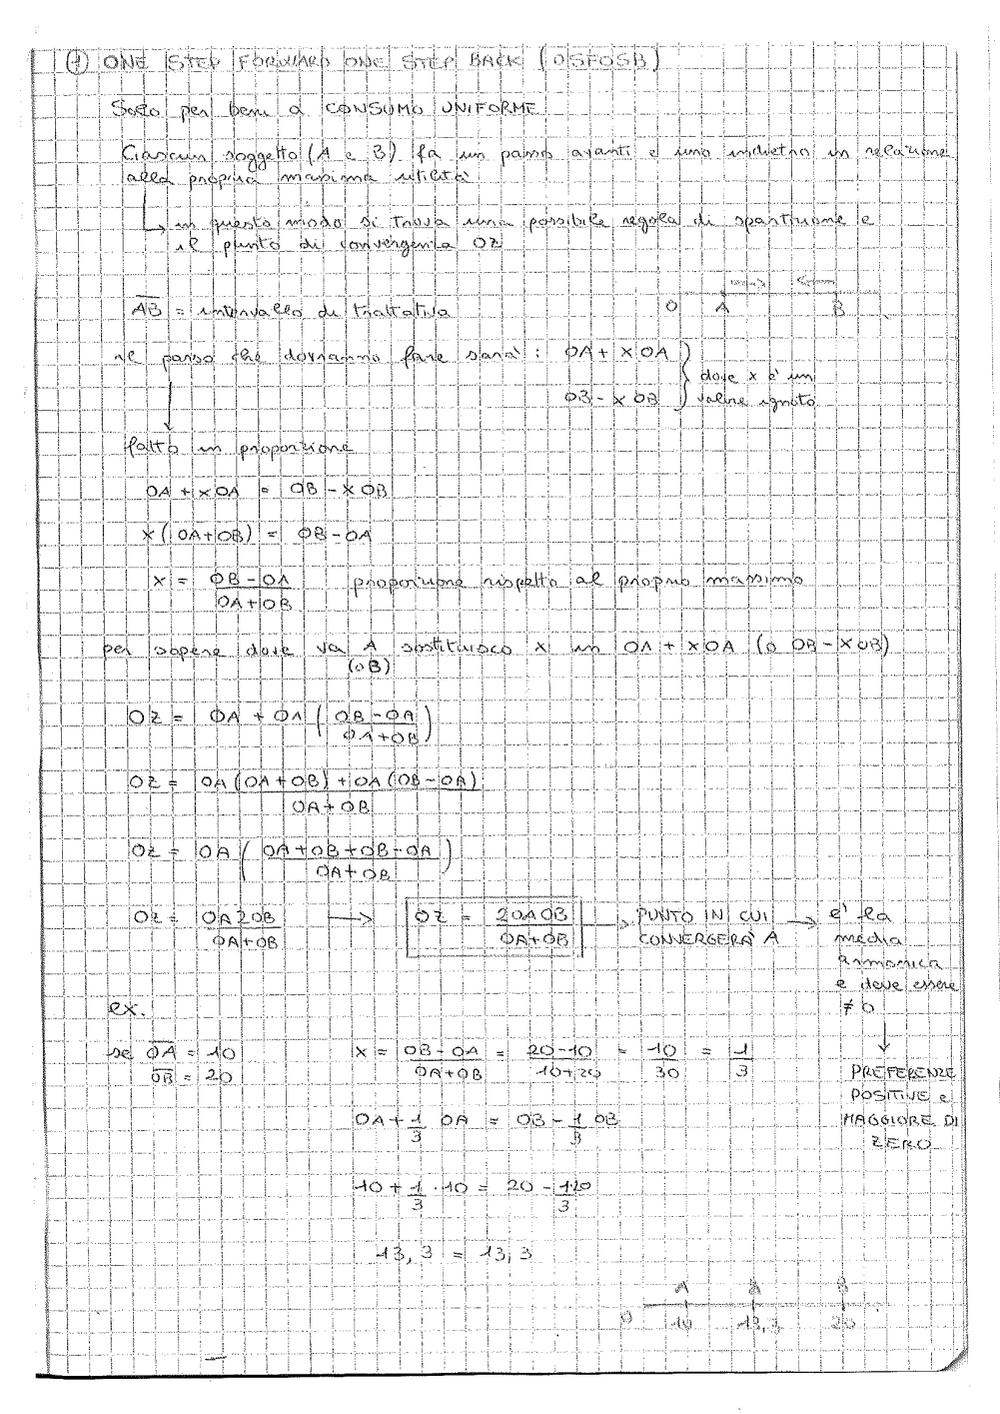 ① ONE STEP FORWARD ONE STEP BACK (OSFOSB)
Solo per beni a CONSUMO UNIFORME
Ciascun soggetto (A e B) fa un passo avanti e uno indietro in relazione
alla propria massima utilità
↳ in questo modo si trova una possibile regola di spartizione e
il punto di convergenza OZ
O A B
AB = intervallo di trattativa
il passo che dovranno fare sarà: OA + XOA
OB - XOB } dove x è un
valore ignoto
fatto in proporzione
OA + XOA = OB - XOB
X(OA+OB) = OB-OA
X = OB-OA / OA+OB proporzione rispetto al proprio massimo
per sapere dove va A sostituisco x in OA + XOA (o OB-XOB)
(o B)
OZ = OA + OA (OB-OA / OA+OB)
OZ = OA(OA+OB) + OA(OB-OA) / OA+OB
OZ = OA (OA+OB+OB-OA / OA+OB)
OZ = OA2OB / OA+OB → OZ = 2OAOB / OA+OB → PUNTO IN CUI
CONVERGERA' A → e' la
media
armonica
e deve essere
≠ 0
↓
PREFERENZE
POSITIVE e
MAGGIORE DI
ZERO
ex.
se OA = 10
OB = 20
X = OB-OA / OA+OB = 20-10 / 10+20 = 10/30 = 1/3
OA + 1/3 OA = OB - 1/3 OB
10 + 1/3 · 10 = 20 - 1/3 20
13,3 = 13,3
A A B
O 10 13,3 20